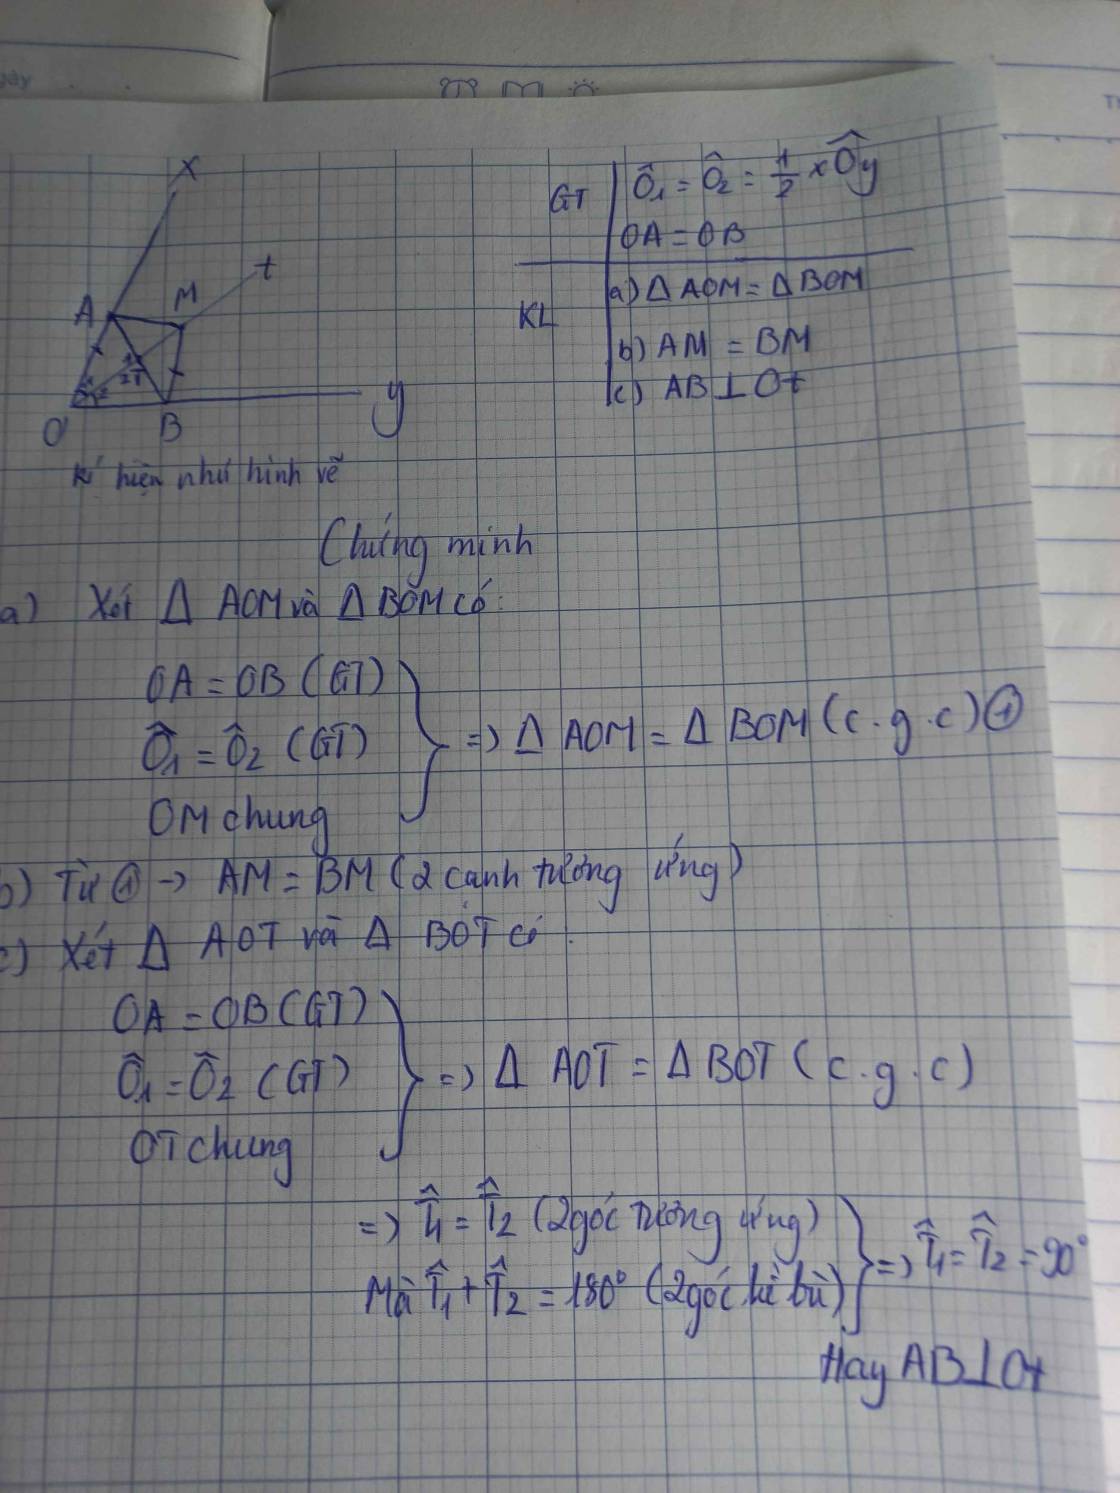 gày
Th
x
t
A
M
1
2 T
1
2
O
B
y
GT
Ô₁ = Ô₂ = 1/2 xÔy
OA = OB
KL
a) Δ AOM = Δ BOM
b) AM = BM
c) AB ⊥ Ot
Kí hiện như hình vẽ
Chứng minh
a) Xét Δ AOM và Δ BOM có:
OA = OB (GT)
Ô₁ = Ô₂ (GT)
OM chung
=> Δ AOM = Δ BOM (c.g.c) ①
b) Từ ① -> AM = BM (2 cạnh tương ứng)
c) Xét Δ AOT và Δ BOT có:
OA = OB (GT)
Ô₁ = Ô₂ (GT)
OT chung
=> Δ AOT = Δ BOT (c.g.c)
=> T̂₁ = T̂₂ (2 góc tương ứng)
Mà T̂₁ + T̂₂ = 180° (2 góc kề bù)
=> T̂₁ = T̂₂ = 90°
Hay AB ⊥ Ot